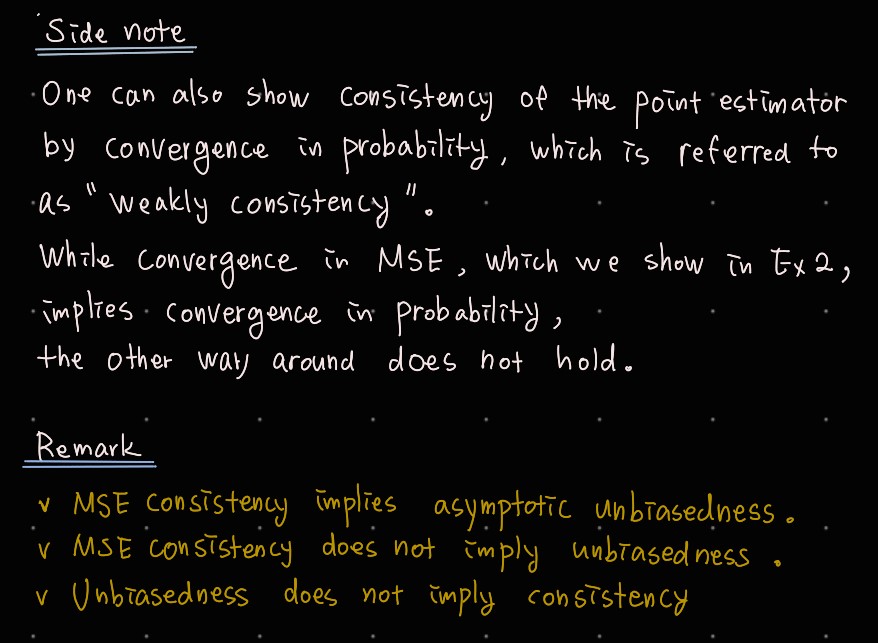 Side note
One can also show consistency of the point estimator
by convergence in probability, which is referred to
as "weakly consistency".
While convergence in MSE, which we show in Ex 2,
implies convergence in probability,
the other way around does not hold.
Remark
v MSE consistency implies asymptotic unbiasedness.
v MSE consistency does not imply unbiasedness.
v Unbiasedness does not imply consistency